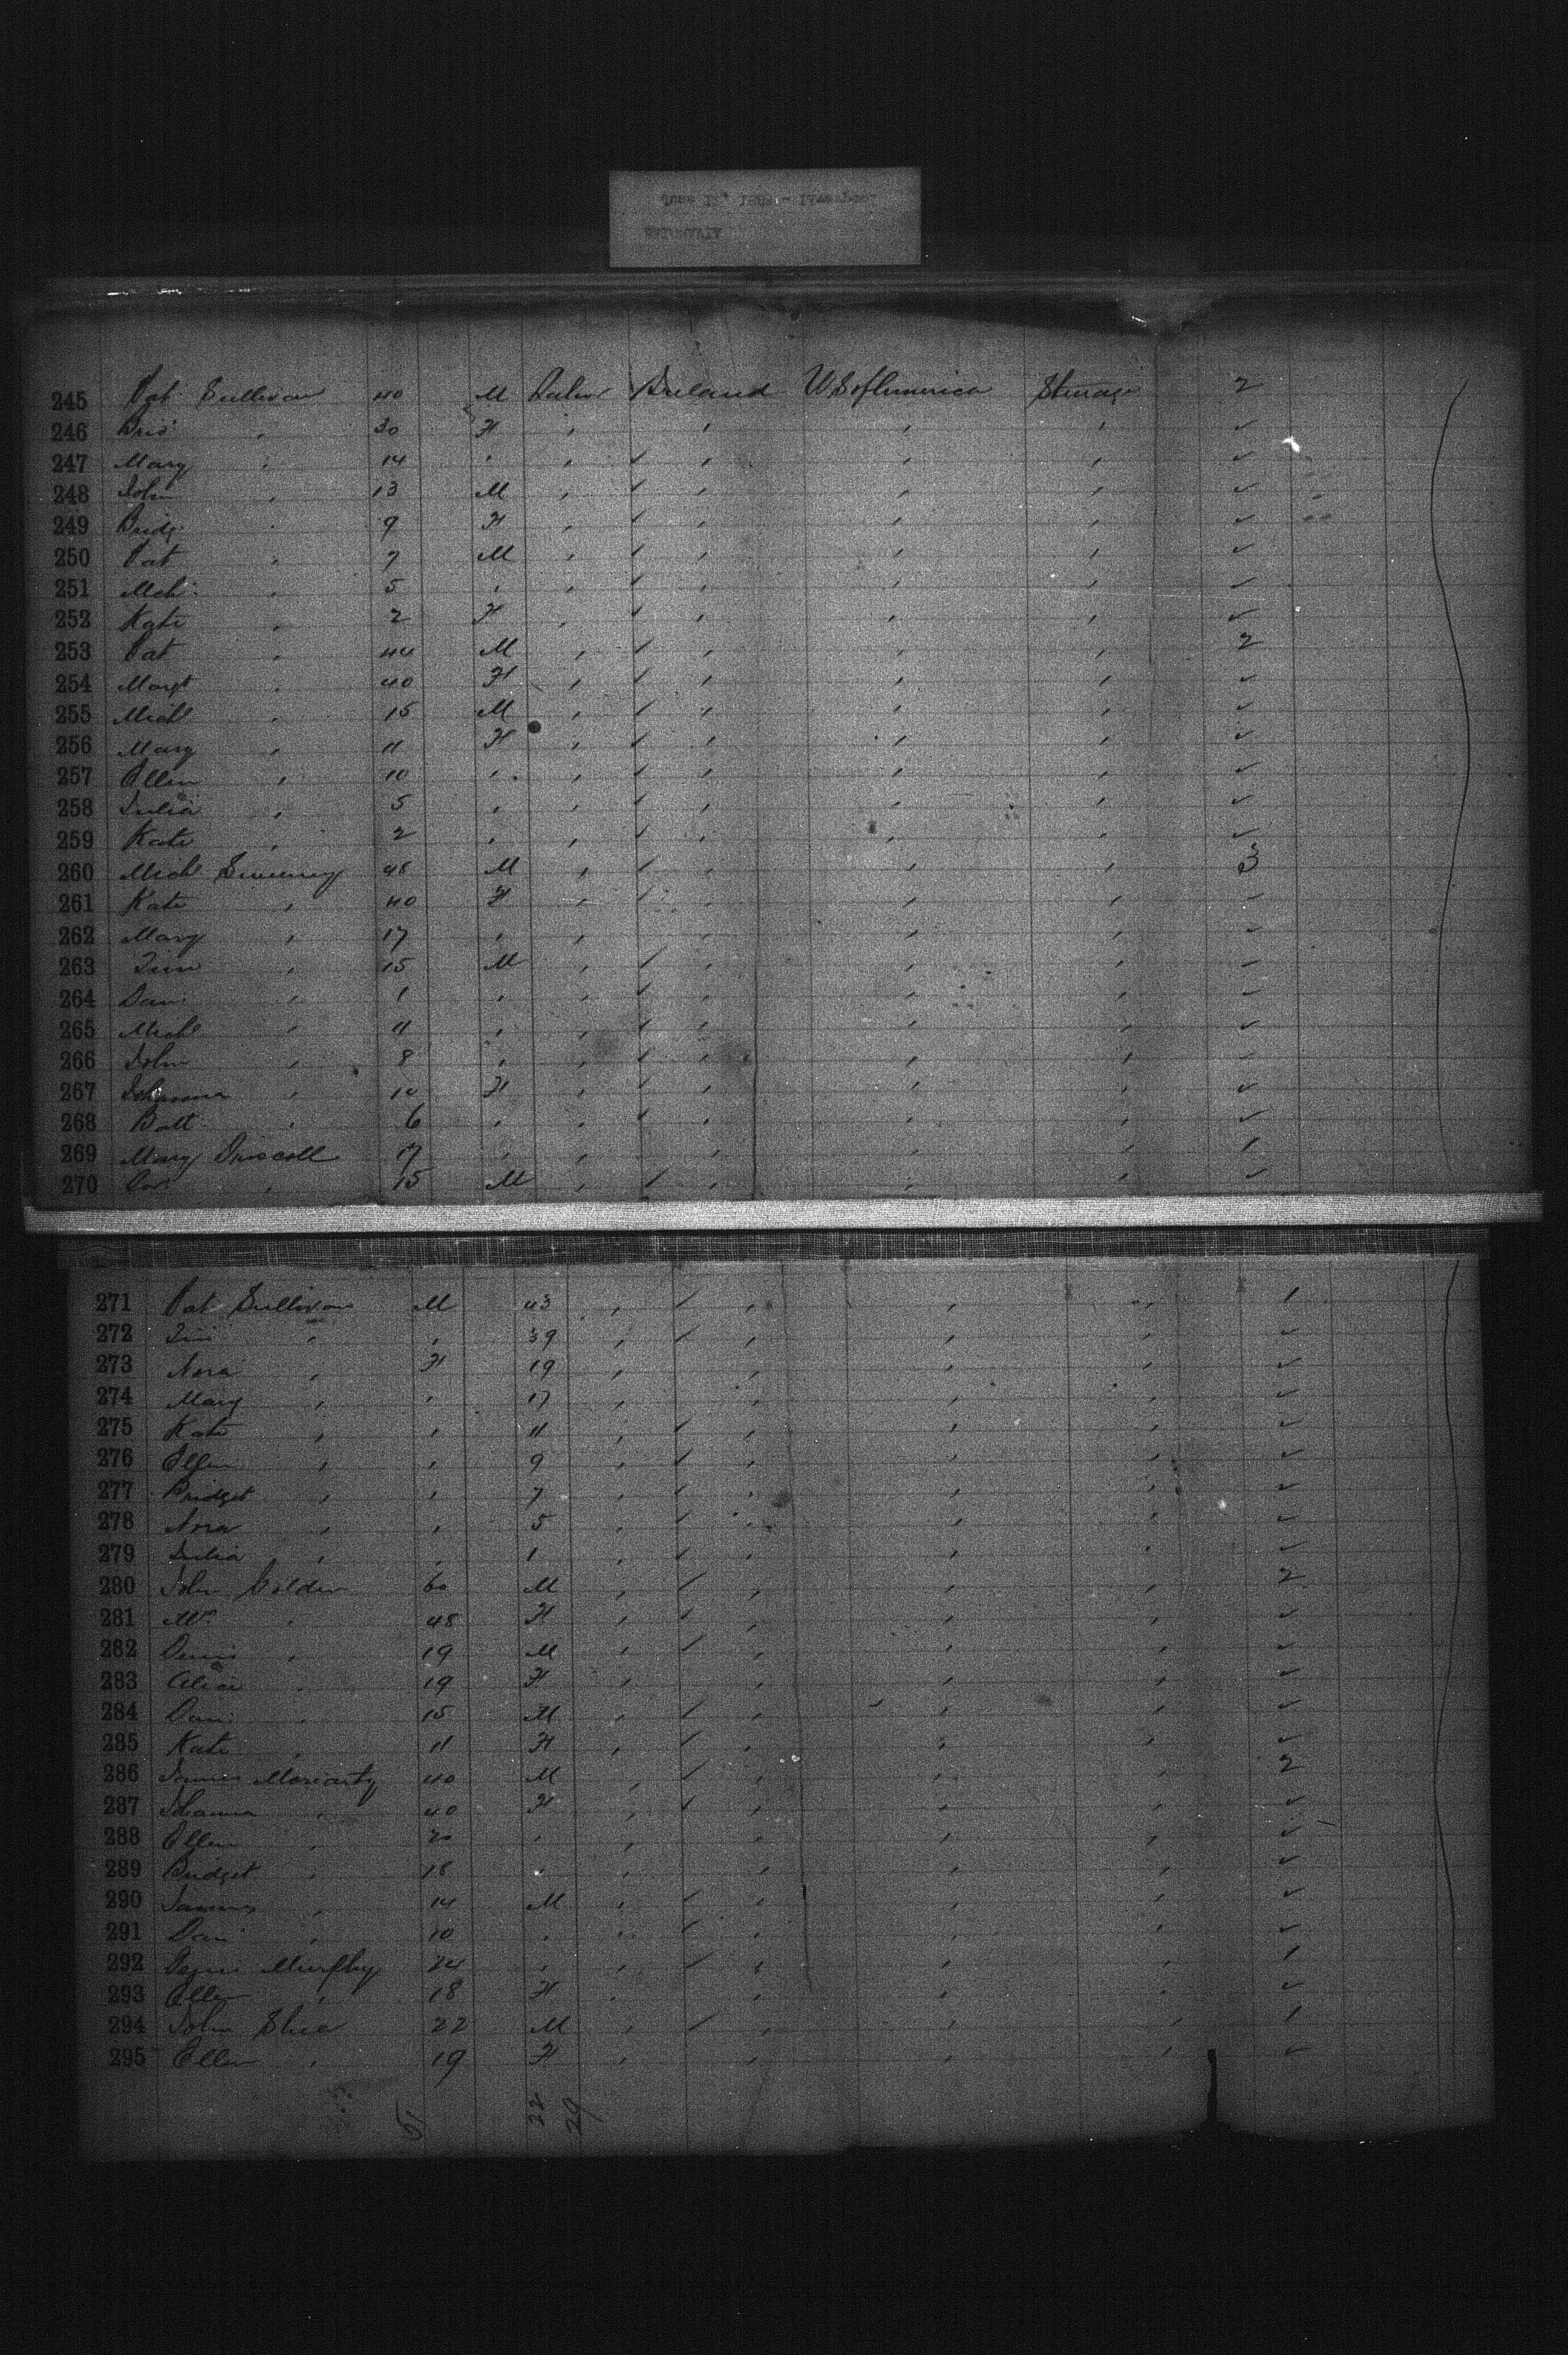 245 Pat Sullivan 40 M Labor Ireland U S of America Steerage 2
246 Brid " 30 F " " " " ✓
247 Mary " 14 " " ✓ " " " ✓
248 John " 13 M " ✓ " " " ✓
249 Bridg " 9 F " ✓ " " " ✓
250 Pat " 7 M " ✓ " " " ✓
251 Mich " 5 " " ✓ " " " ✓
252 Kate " 2 F " ✓ " " " ✓
253 Pat " 44 M " ✓ " " " 2
254 Margt " 40 F " ✓ " " " ✓
255 Michl " 15 M " ✓ " " " ✓
256 Mary " 11 F " ✓ " " " ✓
257 Ellen " 10 " " ✓ " " " ✓
258 Julia " 5 " " ✓ " " " ✓
259 Kate " 2 " " ✓ " " " ✓
260 Michl Sweeney 48 M " ✓ " " " 3
261 Kate " 40 F " ✓ " " " ✓
262 Mary " 17 " " " " " ✓
263 Tim " 15 M " ✓ " " " ✓
264 Dan " 1 " " ✓ " " " ✓
265 Michl " 11 " " ✓ " " " ✓
266 John " 8 " " ✓ " " " ✓
267 Johanna " 10 F " ✓ " " " ✓
268 Batt " 6 " " ✓ " " " ✓
269 Mary Driscoll 17 " " " " " 1
270 " 15 M " ✓ " " " ✓
271 Pat Sullivan M 43 " ✓ " " " 1
272 Tim " " 39 " ✓ " " " ✓
273 Nora " F 19 " " " " ✓
274 Mary " " 17 " " " " ✓
275 Kate " " 11 " ✓ " " " ✓
276 Ellen " " 9 " ✓ " " " ✓
277 Bridget " " 7 " ✓ " " " ✓
278 Nora " " 5 " ✓ " " " ✓
279 Julia " " 1 " ✓ " " " ✓
280 John Golden 60 M " ✓ " " " 2
281 Mrs " 48 F " ✓ " " " ✓
282 Denis " 19 M " ✓ " " " ✓
283 Alice " 19 F " " " " ✓
284 Dan " 15 M " ✓ " " " ✓
285 Kate " 11 F " ✓ " " " ✓
286 James Moriarty 40 M " ✓ " " " 2
287 Johanna " 40 F " ✓ " " " ✓
288 Ellen " 20 " " " " " ✓
289 Bridget " 18 " " " " " ✓
290 James " 14 M " ✓ " " " ✓
291 Dan " 10 " " ✓ " " " ✓
292 Murphy 24 " " ✓ " " " 1
293 Ellen " 18 F " " " " ✓
294 John Shea 22 M " ✓ " " " 1
295 Ellen " 19 F " " " " ✓
51 22 29